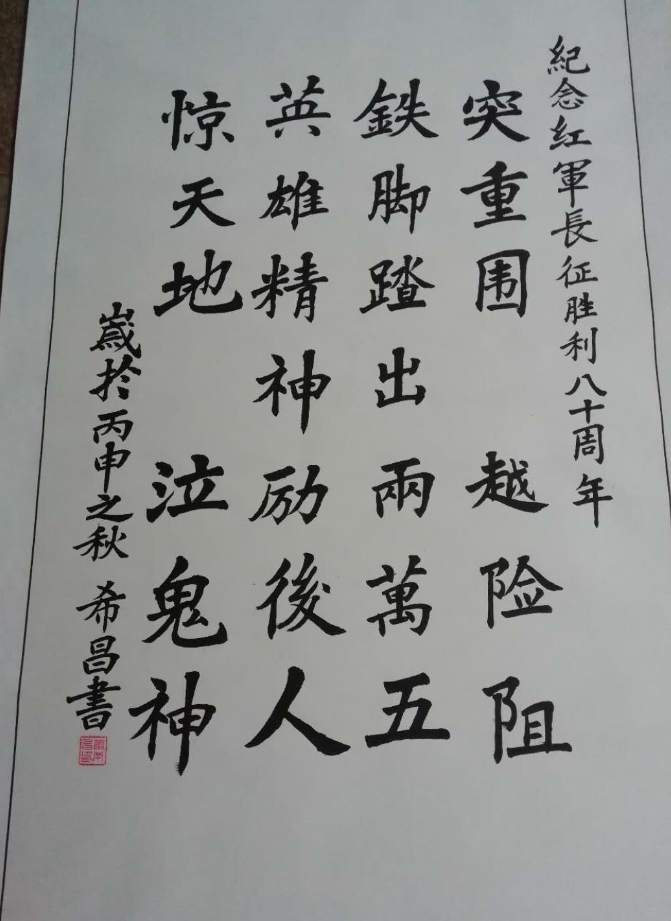 紀念红軍長征胜利八十周年
突重围 越险阻
鉄脚踏出兩萬五
英雄精神励後人
惊天地 泣鬼神
嵗於丙申之秋 希昌書